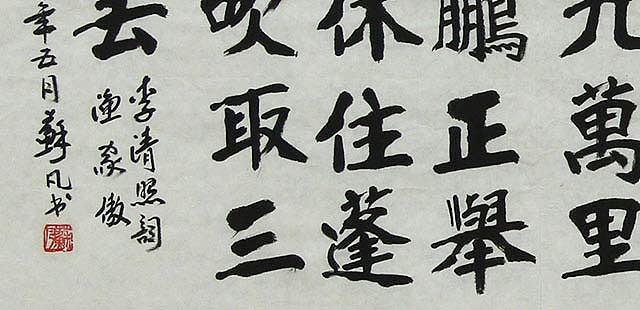 九萬里
鵬正舉
休住蓬
吹取三
去
李清照詞
漁家傲
年五月蘇凡书